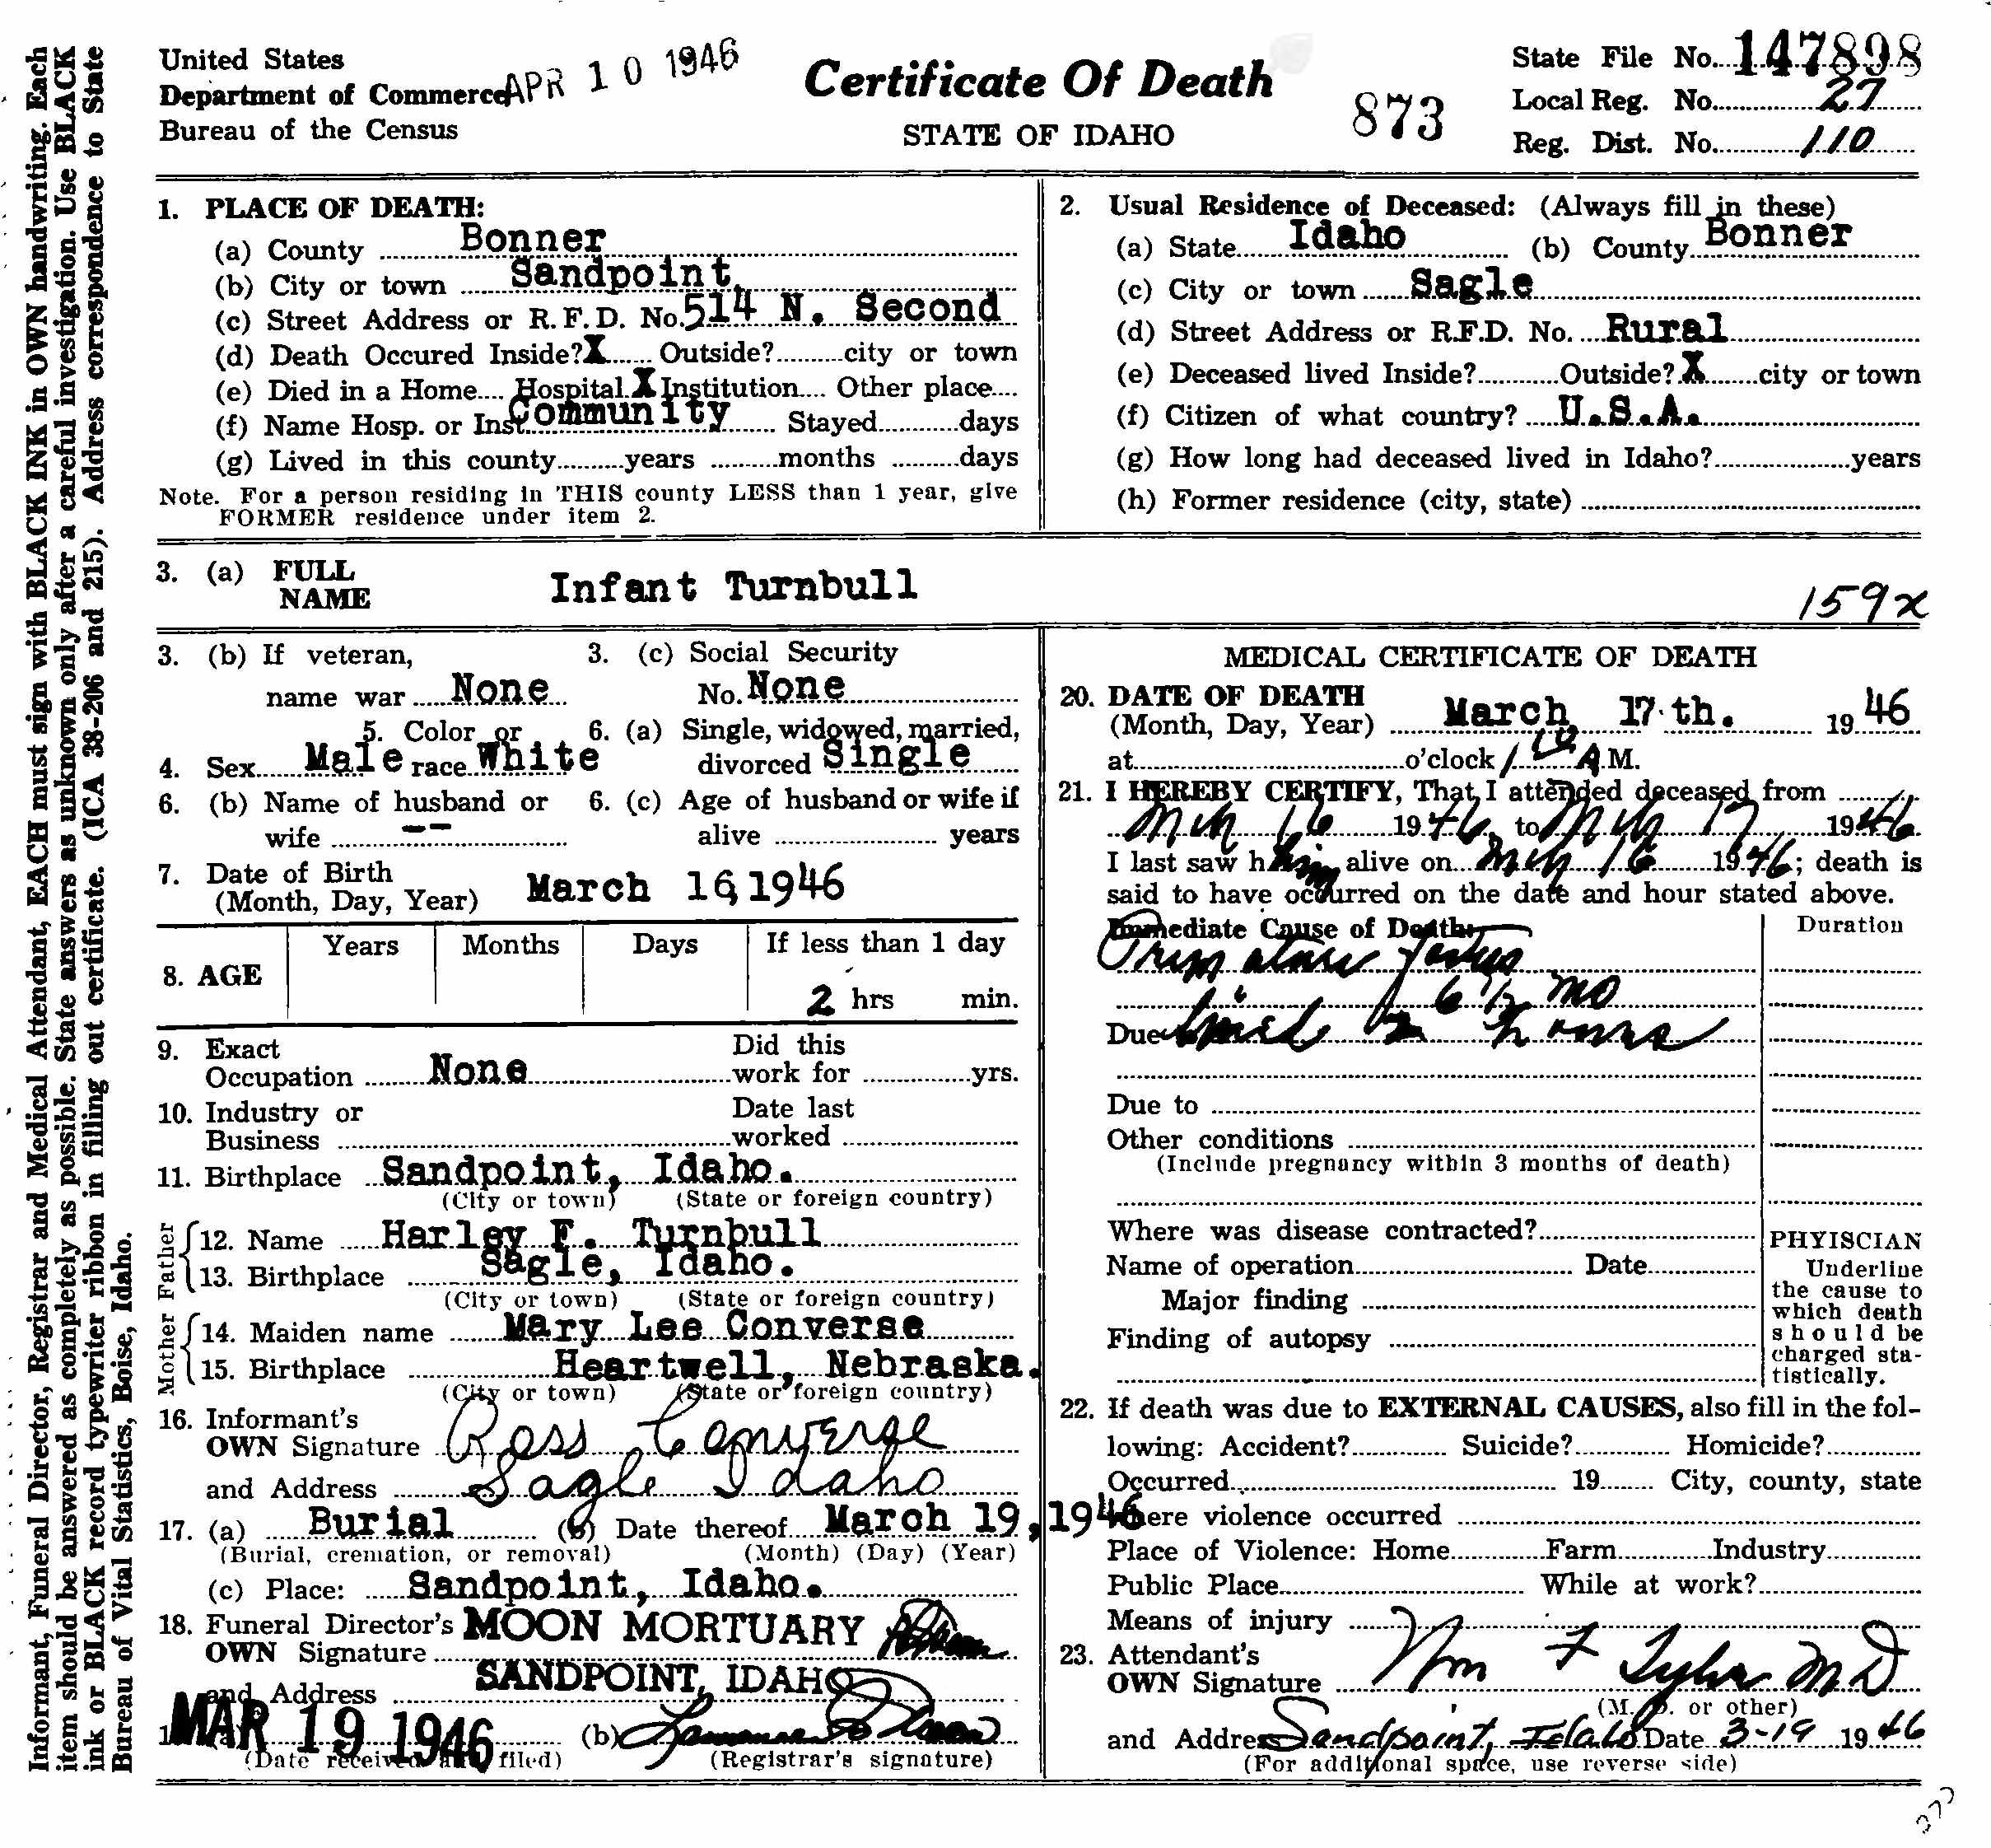 United States
Department of Commerce APR 10 1946
Bureau of the Census
Certificate Of Death
STATE OF IDAHO
873
State File No. 147898
Local Reg. No. 27
Reg. Dist. No. 110
1. PLACE OF DEATH:
(a) County Bonner
(b) City or town Sandpoint,
(c) Street Address or R.F.D. No. 514 N. Second
(d) Death Occured Inside? X Outside? city or town
(e) Died in a Home Hospital X Institution Other place
(f) Name Hosp. or Inst. Community Stayed days
(g) Lived in this county years months days
Note. For a person residing in THIS county LESS than 1 year, give
FORMER residence under item 2.
2. Usual Residence of Deceased: (Always fill in these)
(a) State Idaho (b) County Bonner
(c) City or town Sagle
(d) Street Address or R.F.D. No. Rural
(e) Deceased lived Inside? Outside? X city or town
(f) Citizen of what country? U.S.A.
(g) How long had deceased lived in Idaho? years
(h) Former residence (city, state)
3. (a) FULL
NAME Infant Turnbull
159x
3. (b) If veteran,
name war None
3. (c) Social Security
No. None
4. Sex Male 5. Color or race White
6. (a) Single, widowed, married,
divorced Single
6. (b) Name of husband or
wife --
6. (c) Age of husband or wife if
alive years
7. Date of Birth
(Month, Day, Year) March 16, 1946
8. AGE Years Months Days If less than 1 day
2 hrs min.
9. Exact
Occupation None Did this
work for yrs.
10. Industry or
Business Date last
worked
11. Birthplace Sandpoint, Idaho.
(City or town) (State or foreign country)
Father
12. Name Harley F. Turnbull
13. Birthplace Sagle, Idaho.
(City or town) (State or foreign country)
Mother
14. Maiden name Mary Lee Converse
15. Birthplace Heartwell, Nebraska.
(City or town) (State or foreign country)
16. Informant's
OWN Signature Ross Converse
and Address Sagle Idaho
17. (a) Burial (b) Date thereof March 19, 1946
(Burial, cremation, or removal) (Month) (Day) (Year)
(c) Place: Sandpoint, Idaho.
18. Funeral Director's MOON MORTUARY
OWN Signature
and Address SANDPOINT, IDAHO
MAR 19 1946 (b)
(Date received and filed) (Registrar's signature)
MEDICAL CERTIFICATE OF DEATH
20. DATE OF DEATH
(Month, Day, Year) March 17 th. 19 46
at o'clock 1 10 A M.
21. I HEREBY CERTIFY, That I attended deceased from
Mch 16 19 46, to Mch 17 19 46
I last saw him alive on Mch 16 19 46; death is
said to have occurred on the date and hour stated above.
Immediate Cause of Death: Duration
Premature Foetus
6 1/2 mo
Due lived 2 hours
Due to
Other conditions
(Include pregnancy within 3 months of death)
Where was disease contracted?
Name of operation Date
Major finding
Finding of autopsy
PHYISCIAN
Underline
the cause to
which death
should be
charged sta-
tistically.
22. If death was due to EXTERNAL CAUSES, also fill in the fol-
lowing: Accident? Suicide? Homicide?
Occurred 19 City, county, state
where violence occurred
Place of Violence: Home Farm Industry
Public Place While at work?
Means of injury
23. Attendant's
OWN Signature Wm F Tyler MD
(M. D. or other)
and Address Sandpoint, Idaho Date 3-19 19 46
(For additional space, use reverse side)
Informant, Funeral Director, Registrar and Medical Attendant, EACH must sign with BLACK INK in OWN handwriting. Each
item should be answered as completely as possible. State answers as unknown only after a careful investigation. Use BLACK
ink or BLACK record typewriter ribbon in filling out certificate. (ICA 38-206 and 215). Address correspondence to State
Bureau of Vital Statistics, Boise, Idaho.